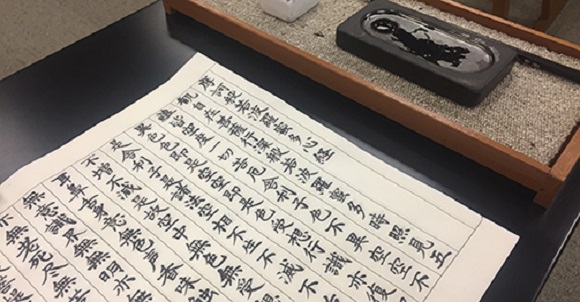 摩訶般若波羅蜜多心経
觀自在菩薩行深般若波羅蜜多時照見五
蘊皆空度一切苦厄舍利子色不異空空不
異色色即是空空即是色受想行識亦復
是舍利子是諸法空相不生不滅不
不增不減是故空中無色無受
耳鼻舌身意無色聲香味
無意識界無無明亦
無老死盡無